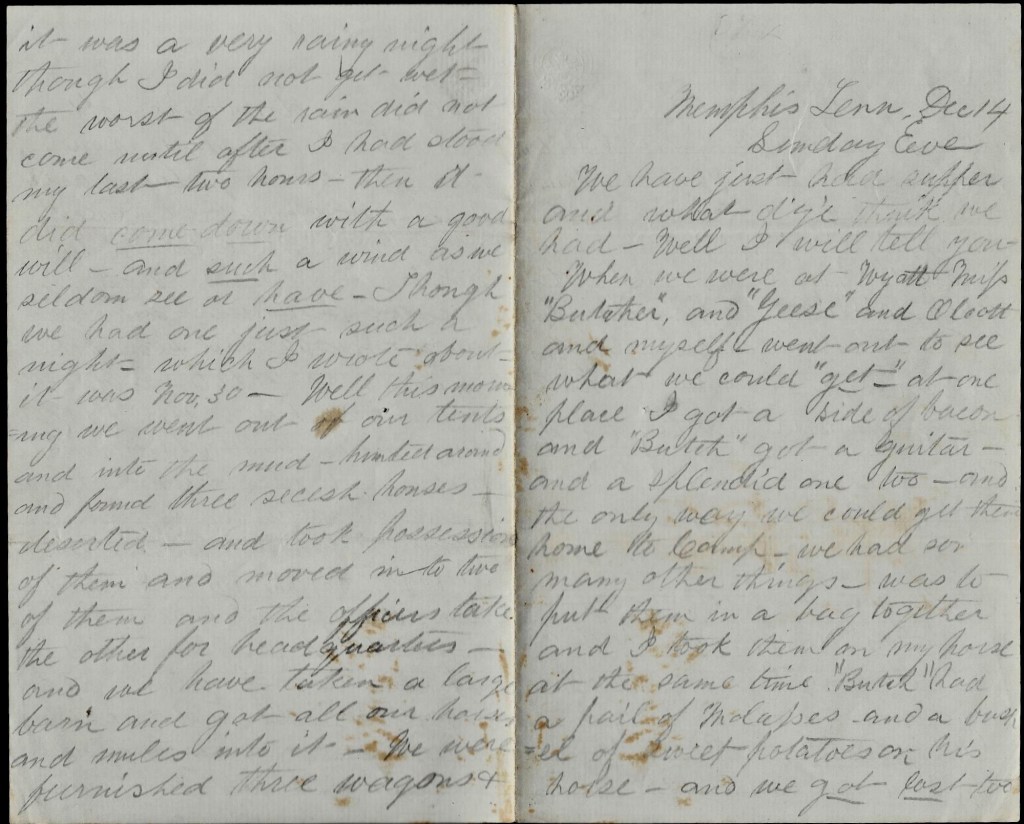 it was a very rainy night
though I did not get wet =
the worst of the rain did not
come until after I had stood
my last two hours - then it
did come down with a good
will - and such a wind as we
seldom see or have - Though
we had one just such a
night = which I wrote about -
it was Nov, 30 - Well this morn
=ing we went out of our tents
and into the mud - hunted around
and found three secesh houses -
deserted - and took possession
of them and moved in to two
of them and the officers take
the other for headquarters -
and we have taken a large
barn and got all our horses
and mules into it - We were
furnished three wagons &
Memphis Tenn, Dec 14
Sunday Eve
We have just had supper
and what d'ye think we
had - Well I will tell you -
When we were at Wyatt Miss
"Butcher", and "Geese" and Olcott
and myself - went out to see
what we could "get -" at one
place I got a side of bacon
and "Butch" got a guitar -
and a splendid one too - and
the only way we could get them
home to Camp - we had so
many other things - was to
put them in a bag together
and I took them on my horse
at the same time "Butch" had
a pail of Molasses and a bush
=el of sweet potatoes on his
horse - and we got lost too